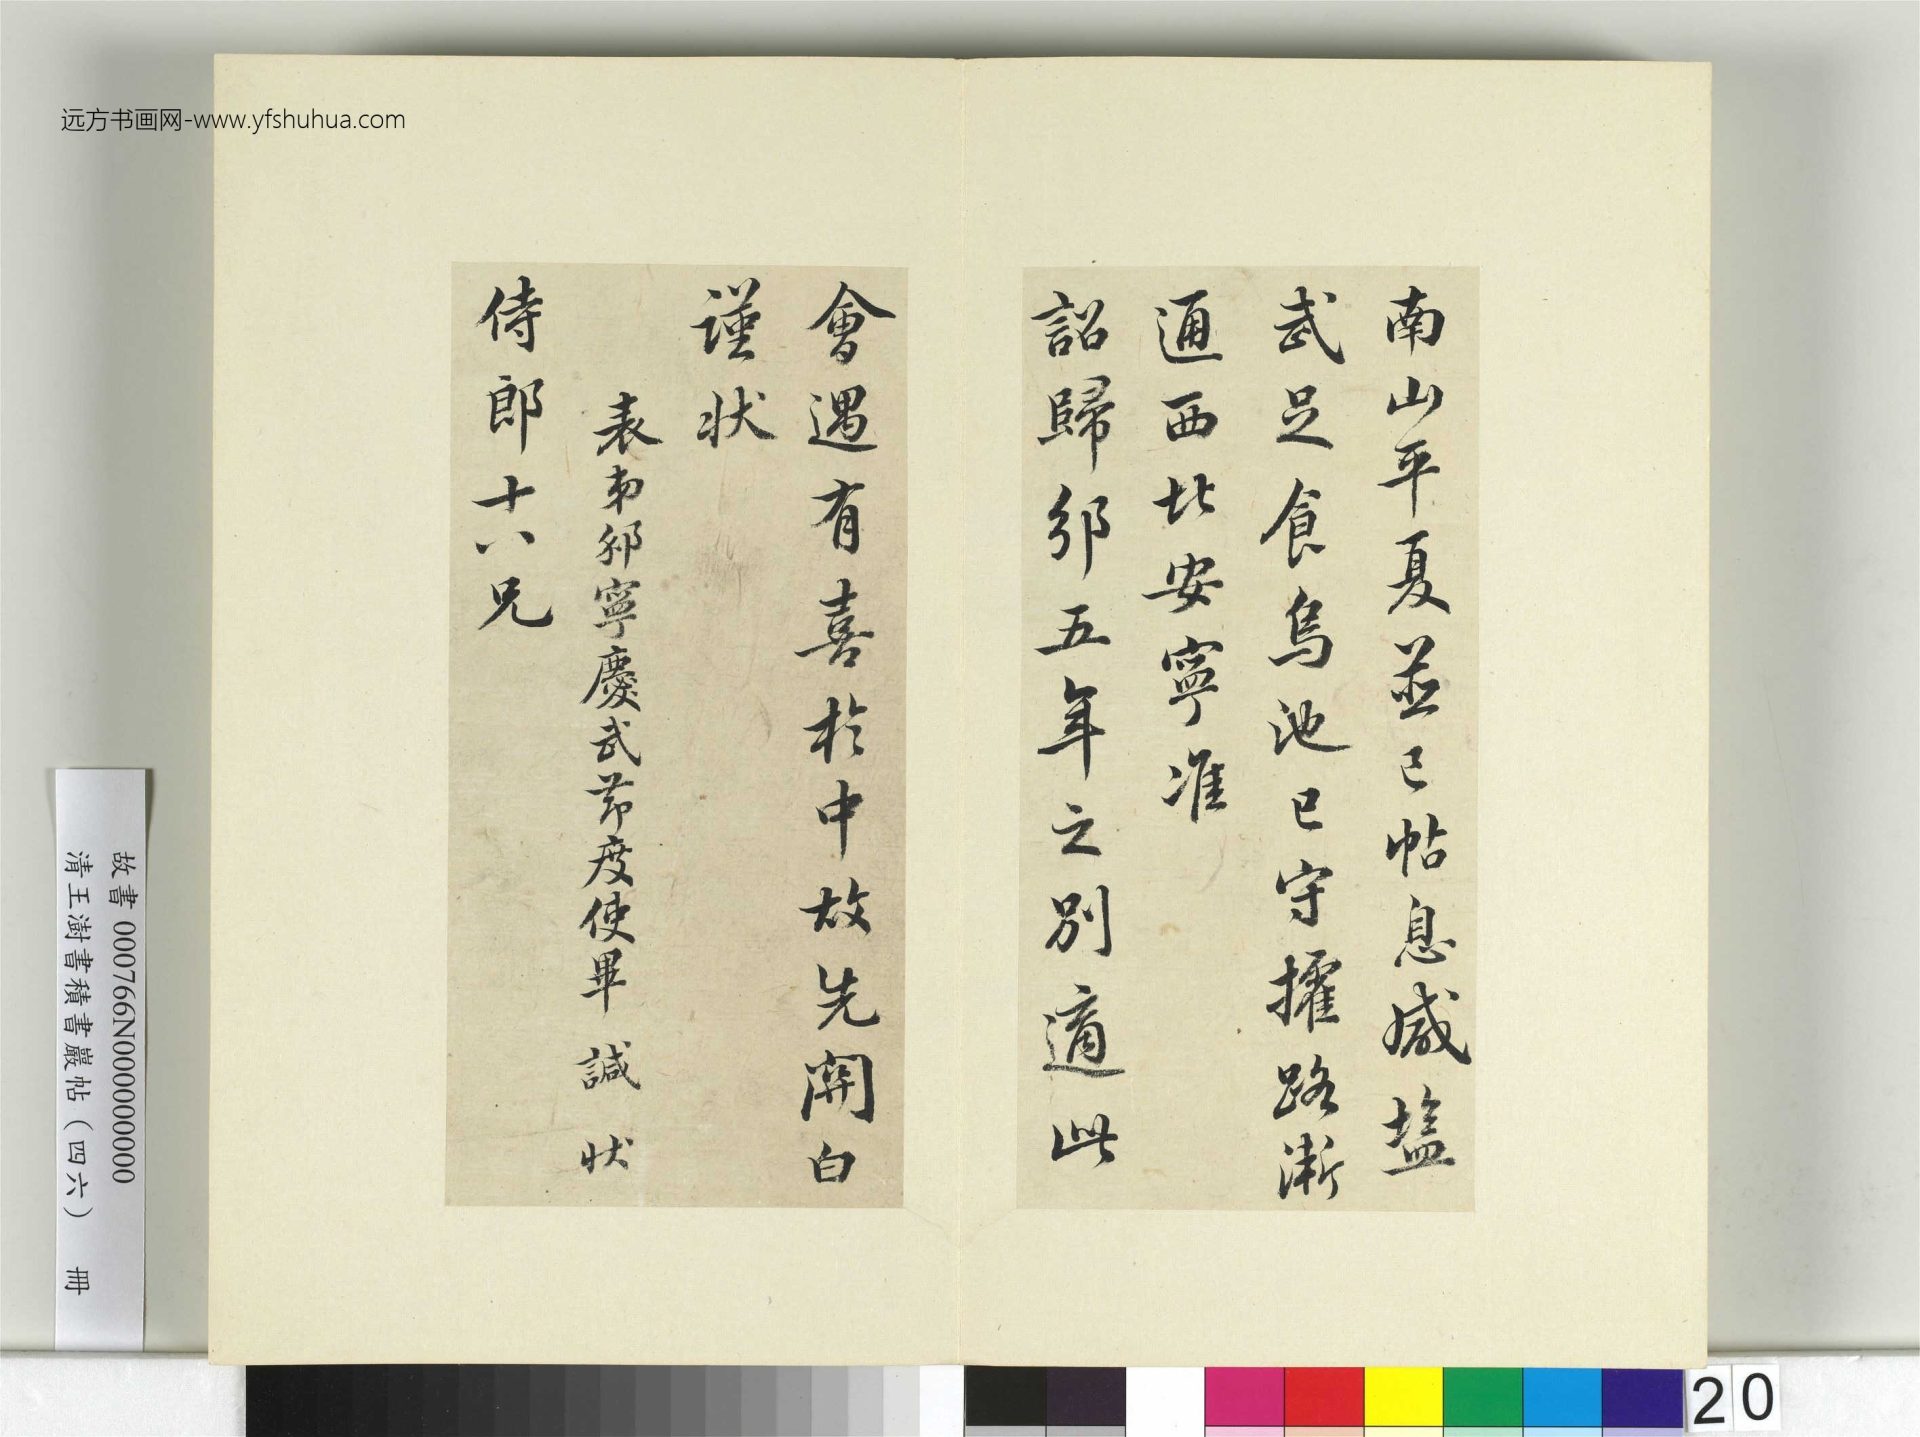 远方书画网-www.yfshuhua.com
南山平夏並已帖息咸塩
武足食烏池已守攉路漸
通西北安寧准
詔歸邠五年之別適此
會遇有喜於中故先開白
謹狀
表弟邠寧慶武節度使畢諴狀
侍郎十八兄
故書 000766N000000000
清王澍書積書巖帖（四六） 冊
20